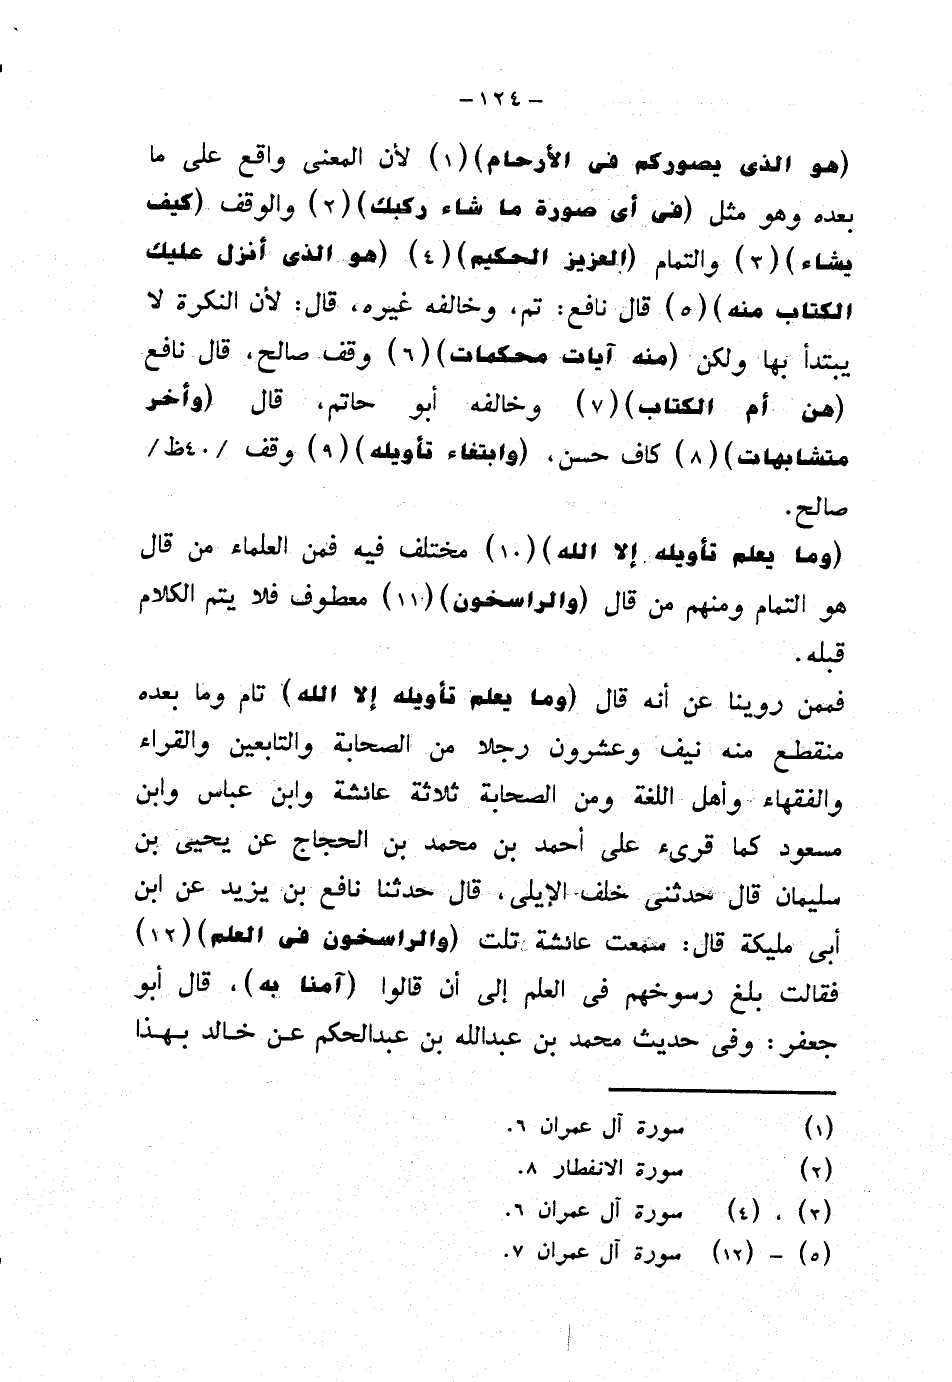 - ١٢٤ -
(هو الذى يصوركم فى الأرحام)(١) لأن المعنى واقع على ما
بعده وهو مثل (فى أى صورة ما شاء ركبك)(٢) والوقف (كيف
يشاء)(٣) والتمام (العزيز الحكيم)(٤) (هو الذى أنزل عليك
الكتاب منه)(٥) قال نافع: تم، وخالفه غيره، قال: لأن النكرة لا
يبتدأ بها ولكن (منه آيات محكمات)(٦) وقف صالح، قال نافع
(هن أم الكتاب)(٧) وخالفه أبو حاتم، قال (وأخر
متشابهات)(٨) كاف حسن، (وابتغاء تأويله)(٩) وقف /٤٠ظ/
صالح.
(وما يعلم تأويله إلا الله)(١٠) مختلف فيه فمن العلماء من قال
هو التمام ومنهم من قال (والراسخون)(١١) معطوف فلا يتم الكلام
قبله.
فممن روينا عن أنه قال (وما يعلم تأويله إلا الله) تام وما بعده
منقطع منه نيف وعشرون رجلا من الصحابة والتابعين والقراء
والفقهاء وأهل اللغة ومن الصحابة ثلاثة عائشة وابن عباس وابن
مسعود كما قرىء على أحمد بن محمد بن الحجاج عن يحيى بن
سليمان قال حدثنى خلف الإيلى، قال حدثنا نافع بن يزيد عن ابن
أبى مليكة قال: سمعت عائشة تلت (والراسخون فى العلم)(١٢)
فقالت بلغ رسوخهم فى العلم إلى أن قالوا (آمنا به)، قال أبو
جعفر: وفى حديث محمد بن عبدالله بن عبدالحكم عن خالد بهذا
(١) سورة آل عمران ٦.
(٢) سورة الانفطار ٨.
(٣) ، (٤) سورة آل عمران ٦.
(٥) - (١٢) سورة آل عمران ٧.